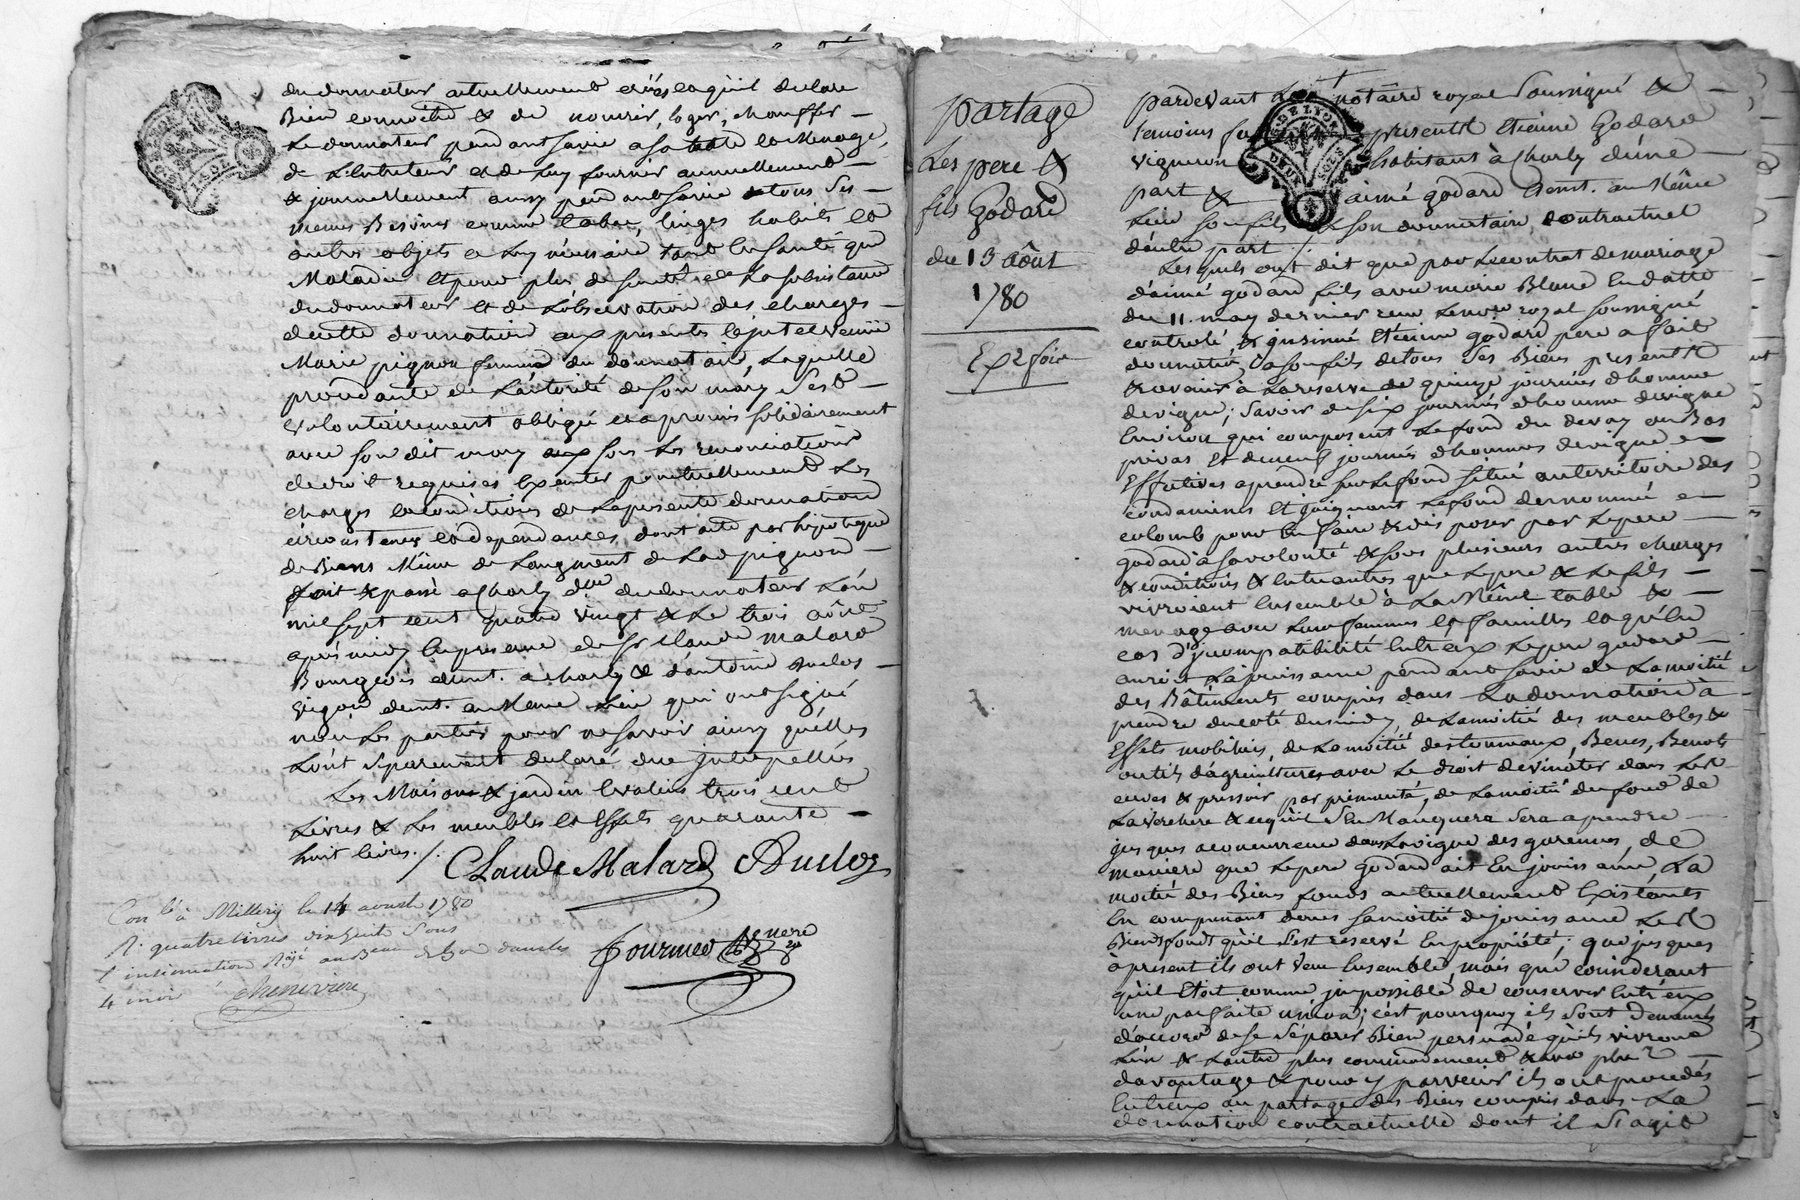 du donnateur actuellement créés laquil declare
Bien connoitre & de nourrir, loger, chauffer
Le donnateur pendant sa vie a sa table et menage,
de L'Entretenir et de Luy fournir annuellement
& journellement aussy pendant sa vie tous ses
menus Besoins comme tabac, linges habits et
autres objets a Luy nécessaire tant En santé que
Maladie Et pour plus de sureté de La subsistance
du donnateur Et de Lobservation des charges
de cette donnation aux presentes Est intervenüe
Marie pignon femme du donnataire, Laquelle
procédante de L'autorité de son mary s'est
volontairement obligé et a promis solidairement
avec son dit mary sous Les renonciations
de droit requises Exécuter ponctuellement Les
charges et conditions de La presente donnation
circonstances et dependances, dont acte par hipoteque
de Biens Même de Laugment de Lad. pignon
fait & passé a Charly du donnateur L'an
mil sept cent quatre vingt & Le trois aôut
après midy En presence de Sr Claude Malard
Bourgeois demt. a Charly & d'antoine Duclos
vigon demt. au Même Lieu qui ont signé
non Les parties pour ne savoir ainsy qu'elles
L'ont séparement declaré due jnterpellés
Les Maison & jardin Evalués trois cent
Livres & Les meubles et Effets quarante
huit livres./.
Claude Malard Duclos
Con.lé à Millery le 14 aoust 1780
R. quatre livres vingt sols
l'insinuation
4 mois Chenevière
fourmeo
partage
Les pere &
fils Godard
du 13 Aôut
1780
Ex 2 fois
pardevant Le notaire royal soussigné &
temoins fu presents Etienne Godard
vigneron habitant à Charly d'une
part & aimé godard demt. au Même
Lieu son fils & son donnataire contractuel
d'autre part ./.
Lesquels ont dit que par Le contrat de mariage
d'aimé godard fils avec marie Blanc En datte
du 11. may dernier reçu Le notre royal soussigné
controlé, & jnsinué Etienne godard pere a fait
donnation a son fils de tous ses Biens presents
& avenir à La reserve de quinze journées d'homme
de vigne; savoir de six journées d'homme de vigne
Environ qui composent Le fond du devay ou Bas
privas Et de neuf journées d'hommes de vigne
Effectives a prendre sur Le fond situé au territoire des
condamines Et joignant Le fond dernommé
colomb pour En faire & disposer par Le pere
godard à sa volonté & sous plusieurs autres charges
& conditions & Entre autres que Le pere & Le fils
vivroient Ensemble à La Même table &
menage avec Leurs femmes Et familles Et qu'En
cas d'jncompatibilité Entr'eux Le pere godard
auroit La jouissance pendant sa vie de La moitié
des Bâtiments compris dans La donnation à
prendre du coté du midy, de La moitié des meubles &
Effets mobiliers, de La moitié des tonneaux, Benes, Benots
outils d'agricultures avec Le droit de vinater dans Les
cuves & pressoir par primauté, de La moitié du fond de
La verchere & ce qu'il s'En Manquera sera a prendre
jusques a concurrence dans La vigne des garennes, de
maniere que Le pere godard ait En jouissance, La
moitié des Biens fonds actuellement Existants
En comprenant dans sa moitié de jouissance Les
Biens fonds qu'il s'est reservé En propriété; que jusques
à present ils ont vecu Ensemble, mais que considerant
qu'il Etoit comme jmpossible de conserver Entr'eux
une parfaite union; c'est pourquoy ils sont demeurés
d'accord de se séparer Bien persuadé qu'ils vivront
L'un & L'autre plus commodement & se plair
davantage & pour y parvenir ils ont procédés
Entr'eux au partage des Biens compris dans La
donnation contractuelle dont il s'agit